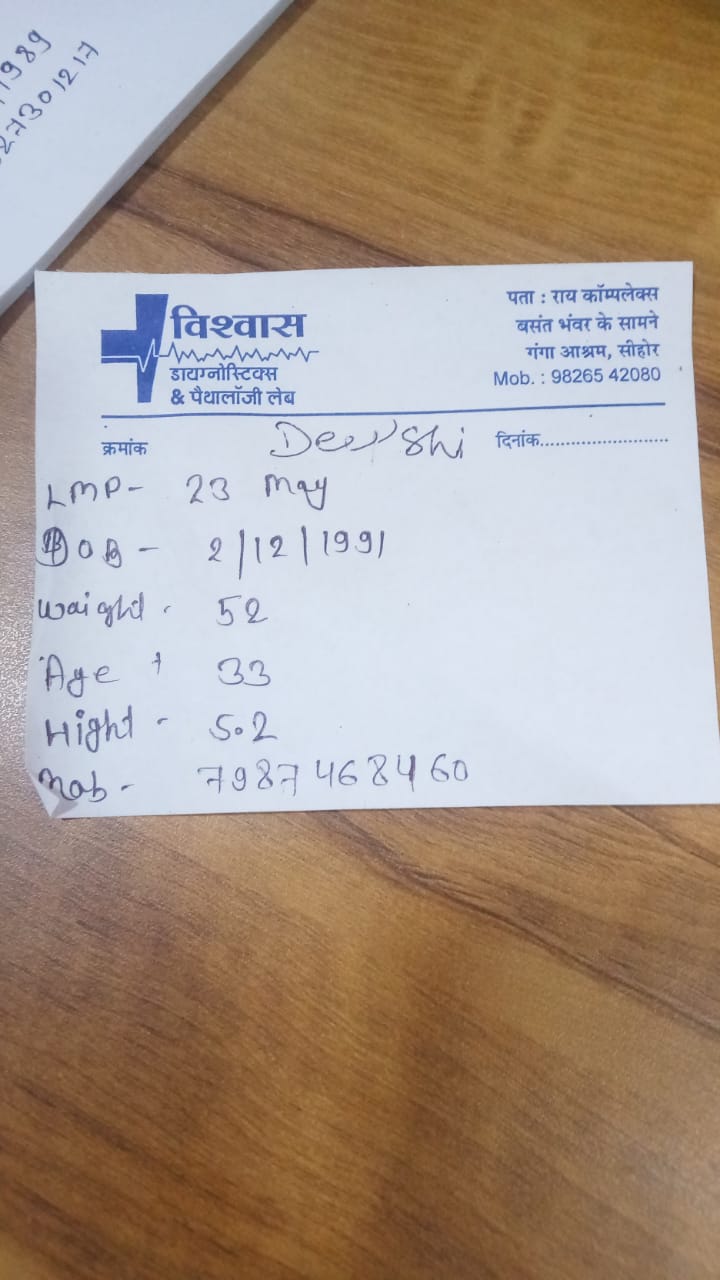 1989
27301217
विश्वास
डायग्नोस्टिक्स
& पैथालॉजी लेब
पता : राय कॉम्पलेक्स
बसंत भंवर के सामने
गंगा आश्रम, सीहोर
Mob. : 98265 42080
क्रमांक
दिनांक........................
LMP - 23 May
DOB - 2/12/1991
Waight - 52
Age + 33
Hight - 5.2
Mob - 7987468460